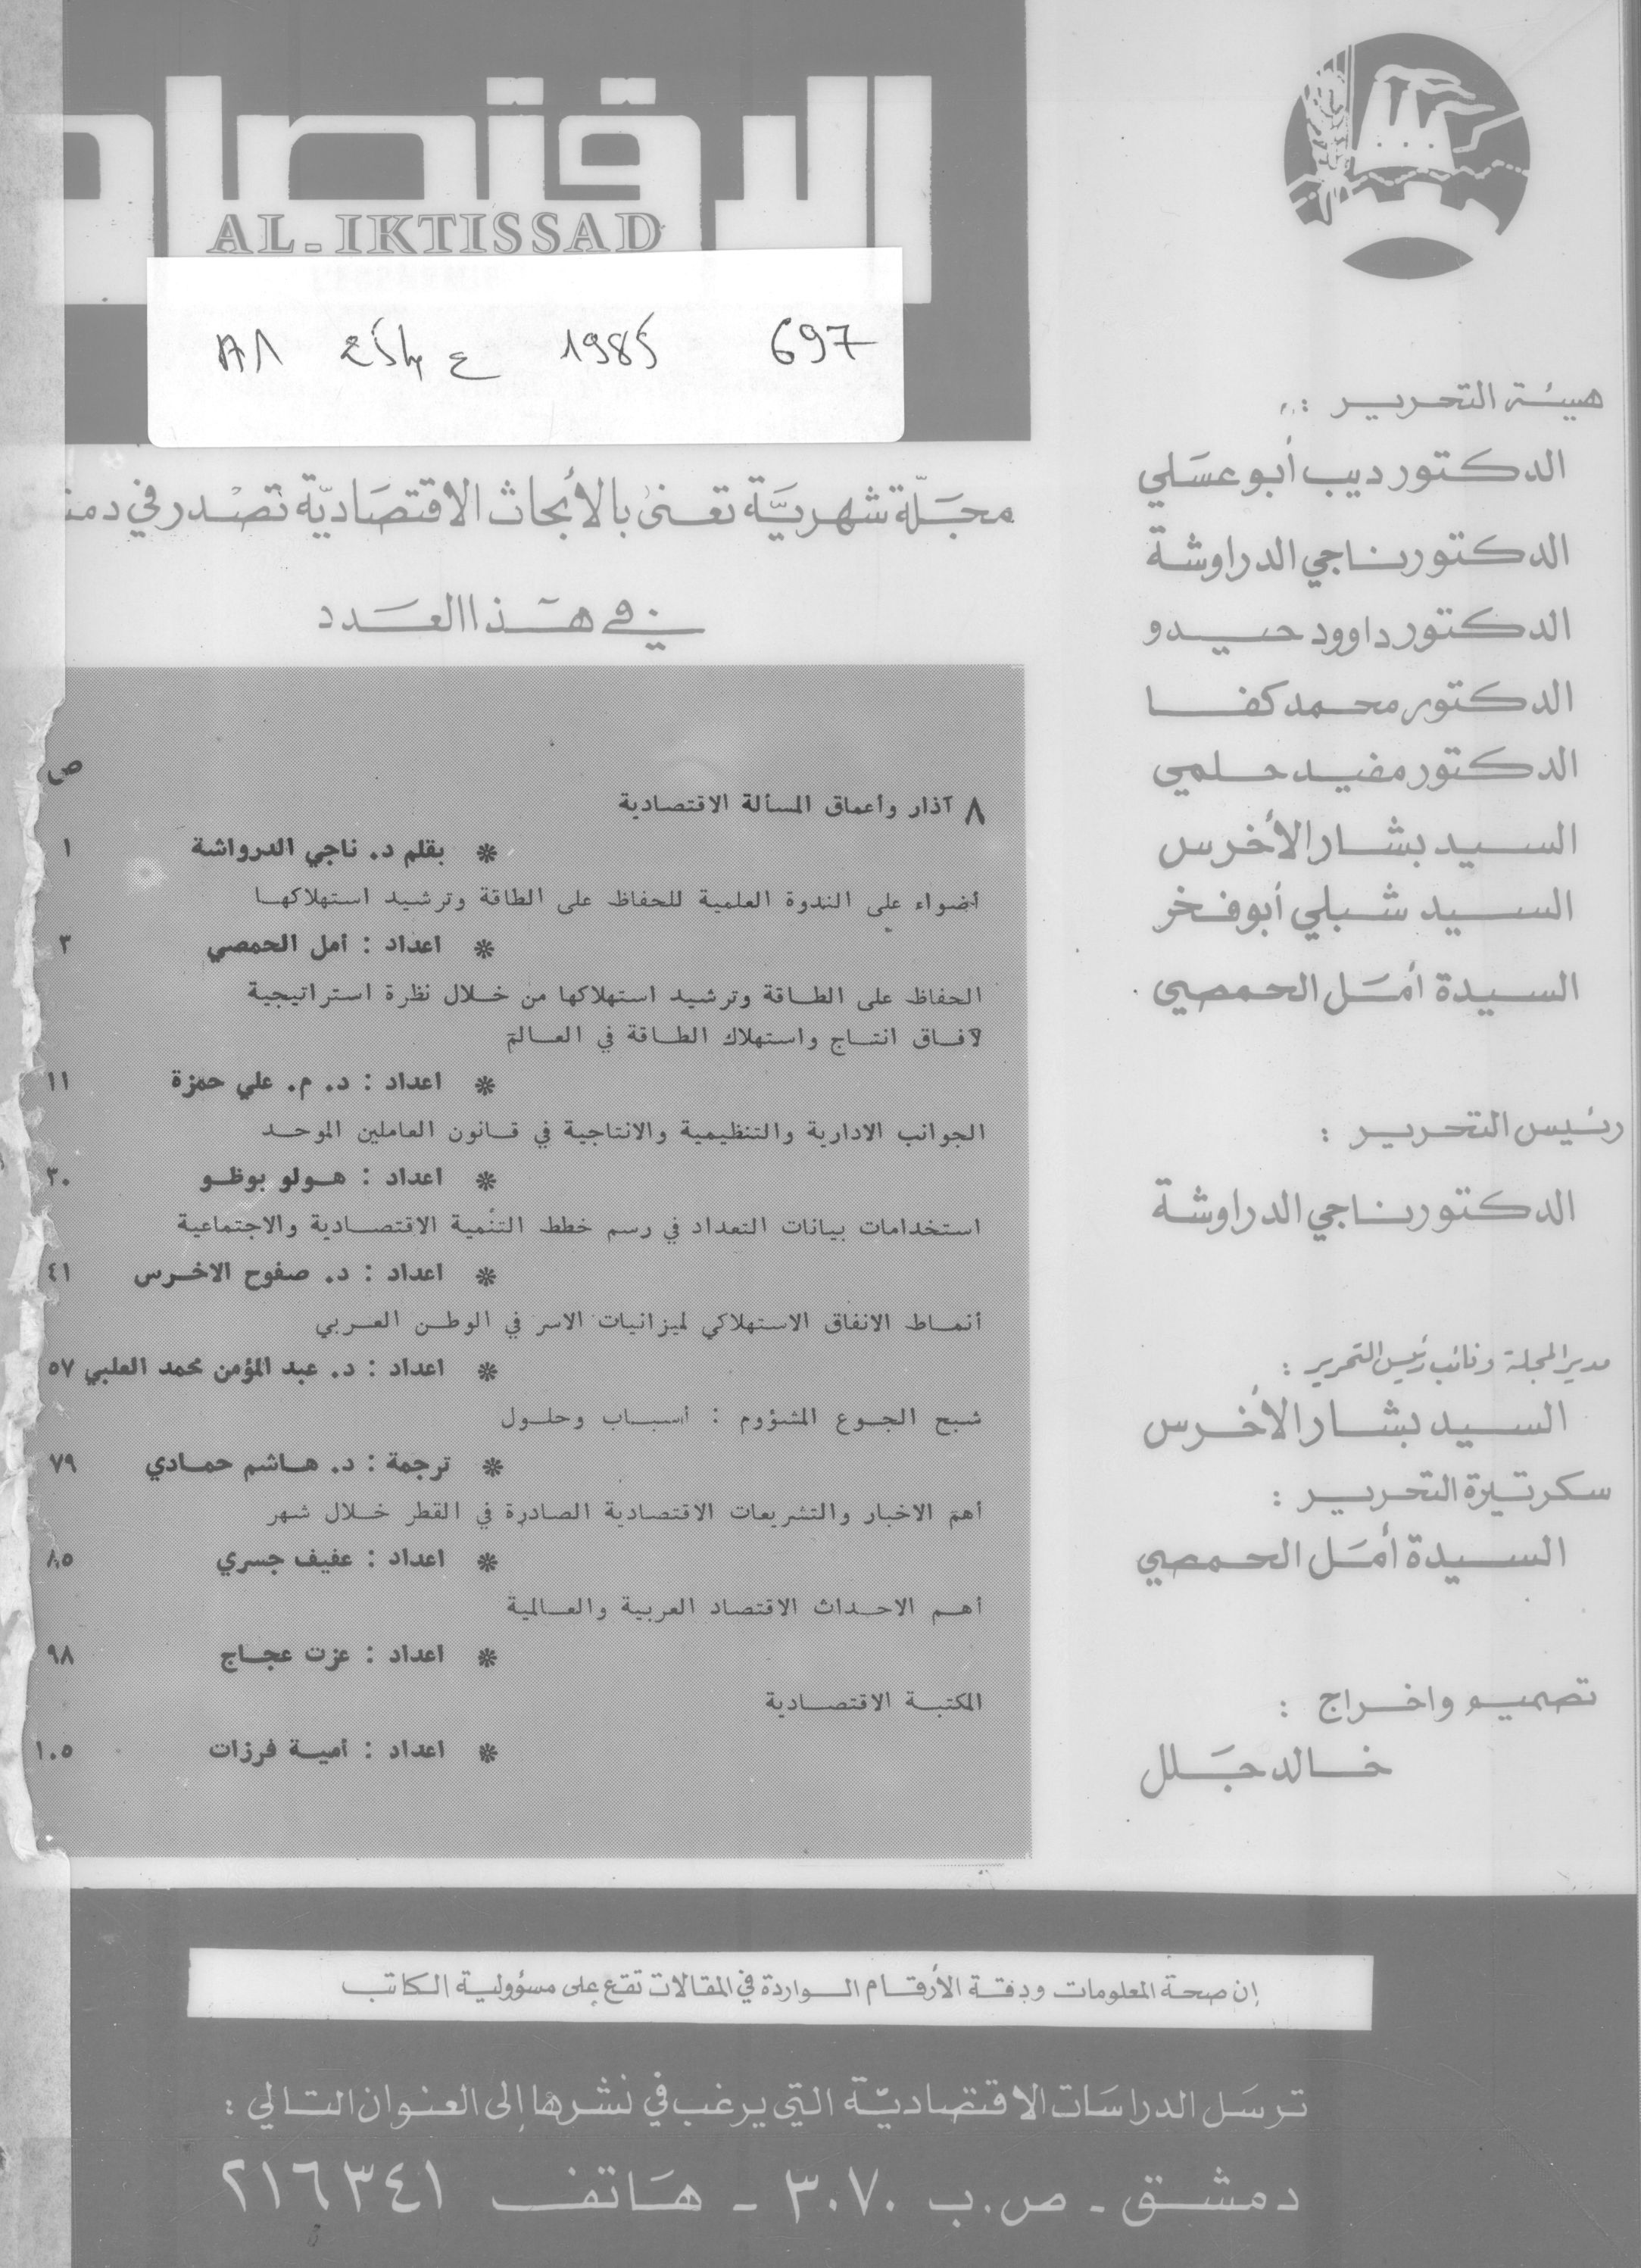 الاقتصاد
AL-IKTISSAD
697 1985
مجلة شهرية تعنى بالأبحاث الاقتصادية تصدر في
في هذا العدد
ص
٨ آذار وأعماق المسألة الاقتصادية
* بقلم د. ناجي الدرواشة ١
أضواء على الندوة العلمية للحفاظ على الطاقة وترشيد استهلاكها
* اعداد : أمل الحمصي ٣
الحفاظ على الطاقة وترشيد استهلاكها من خلال نظرة استراتيجية
لآفاق انتاج واستهلاك الطاقة في العالم
* اعداد : د. م. علي حمزة ١١
الجوانب الادارية والتنظيمية والانتاجية في قانون العاملين الموحد
* اعداد : هولو بوظو ٣٠
استخدامات بيانات التعداد في رسم خطط التنمية الاقتصادية والاجتماعية
* اعداد : د. صفوح الاخرس ٤١
أنماط الانفاق الاستهلاكي لميزانيات الاسر في الوطن العربي
* اعداد : د. عبد المؤمن محمد العلبي ٥٧
شبح الجوع المشؤوم : أسباب وحلول
* ترجمة : د. هاشم حمادي ٧٩
أهم الاخبار والتشريعات الاقتصادية الصادرة في القطر خلال شهر
* اعداد : عفيف جسري ٨٥
أهم الاحداث الاقتصاد العربية والعالمية
* اعداد : عزت عجاج ٩٨
المكتبة الاقتصادية
* اعداد : أمية فرزات ١٠٥
هيئة التحرير :
الدكتور ديب أبو عسلي
الدكتور ناجي الدراوشة
الدكتور داوود حيدو
الدكتور محمد كفا
الدكتور مفيد حلمي
السيد بشار الأخرس
السيد شبلي أبو فخر
السيدة أمل الحمصي
رئيس التحرير :
الدكتور ناجي الدراوشة
مدير المجلة ونائب رئيس التحرير :
السيد بشار الأخرس
سكرتيرة التحرير :
السيدة أمل الحمصي
تصميم واخراج :
خالد جلل
إن صحة المعلومات ودقة الأرقام الواردة في المقالات تقع على مسؤولية الكاتب
ترسل الدراسات الاقتصادية التي يرغب في نشرها إلى العنوان التالي :
دمشق - ص.ب ٣٠٧٠ - هاتف ٢١٦٣٤١